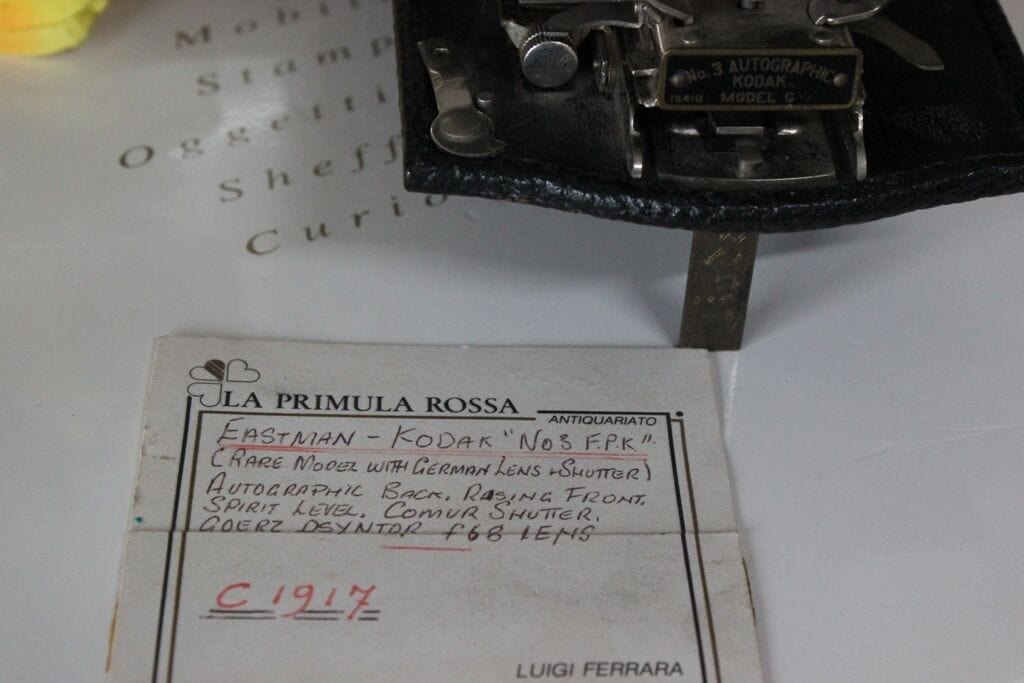 Mobil
Stamp
Oggetti
Sheff
Curio
No. 3 AUTOGRAPHIC
KODAK
15410 MODEL G
LA PRIMULA ROSSA
ANTIQUARIATO
EASTMAN - KODAK "No3 F.P.K".
(RARE MODEL WITH GERMAN LENS + SHUTTER)
AUTOGRAPHIC BACK. RASING FRONT.
SPIRIT LEVEL. COMUR SHUTTER.
GOERZ DSYNTAR f68 LENS
C 1917
LUIGI FERRARA